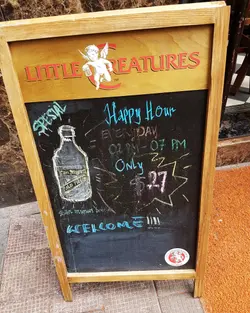 LITTLE CREATURES
SPECIAL
Happy Hour
EVERYDAY
02PM - 07PM
Only
$27
WELCOME!!!!